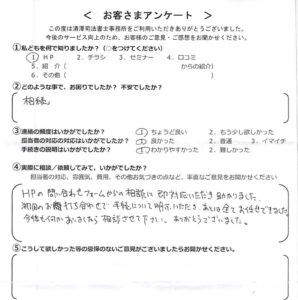 ＜ お客さまアンケート ＞
この度は清澤司法書士事務所をご利用いただきありがとうございました。
今後のサービス向上のため、お客様のご意見・ご感想をお聞かせください。
①私どもを何で知りましたか？（○をつけてください）
1．HP 2．チラシ 3．セミナー 4．口コミ
5．紹 介（ からの紹介）
6．その他（ ）
②どのような事で、お困りでしたか？ 不安でしたか？
相続
③連絡の頻度はいかがでしたか？ 1）ちょうど良い 2．もう少し欲しかった
担当者の対応の対応はいかがでしたか？ 1）良かった 2．普通 3．イマイチ
手続きの説明はいかがでしたか？ 1）わかりやすかった 2．難しかった
④実際に相談／依頼してみて、いかがでしたか？
担当者の対応、雰囲気、費用、その他お気づきの点など、率直なご意見をお聞かせください
HPの問い合わせフォームからの相談に即対応いただき助かりました。
初回のお打ち合わせで手続について明示いただき、あとは全てお任せできました。
今後も何かありましたら相談させて下さい。ありがとうございました。
⑤こうして欲しかった等の忌憚のないご意見がございましたらお聞かせください。